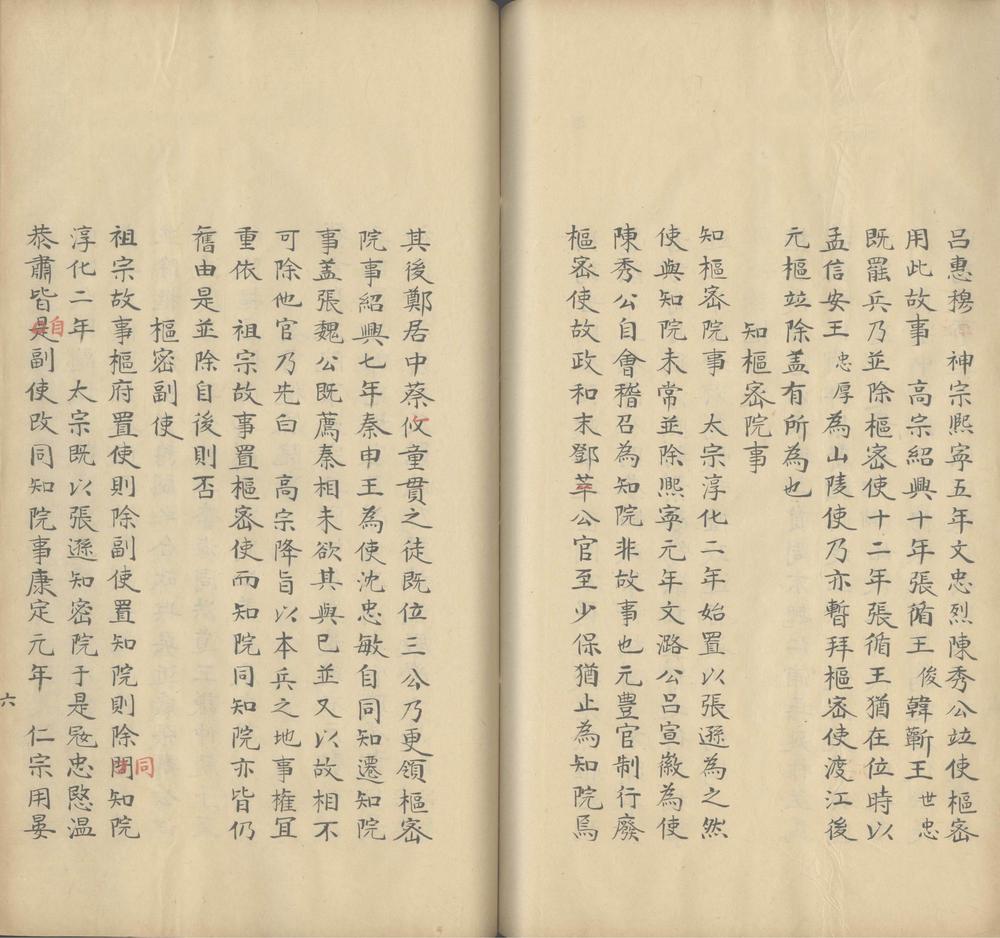 呂惠穆　神宗熙寧五年文忠烈陳秀公竝使樞密
用此故事　高宗紹興十年張循王俊韓蘄王世忠
既罷兵乃並除樞密使十二年張循王猶在位時以
孟信安王忠厚為山陵使乃亦暫拜樞密使渡江後
元樞竝除蓋有所為也
知樞密院事
知樞密院事　太宗淳化二年始置以張遜為之然
使與知院未常並除熙寧元年文潞公呂宣徽為使
陳秀公自會稽召為知院非故事也元豊官制行廢
樞密使故政和末鄧莘公官至少保猶止為知院焉
其後鄭居中蔡攸童貫之徒既位三公乃更領樞密
院事紹興七年秦申王為使沈忠敏自同知遷知院
事蓋張魏公既薦秦相未欲其與已並又以故相不
可除他官乃先白　高宗降旨以本兵之地事權冝
重依　祖宗故事置樞密使而知院同知院亦皆仍
舊由是並除自後則否
樞密副使
祖宗故事樞府置使則除副使置知院則除同知院
淳化二年　太宗既以張遜知密院于是冦忠愍溫
恭肅皆自副使改同知院事康定元年　仁宗用晏
六